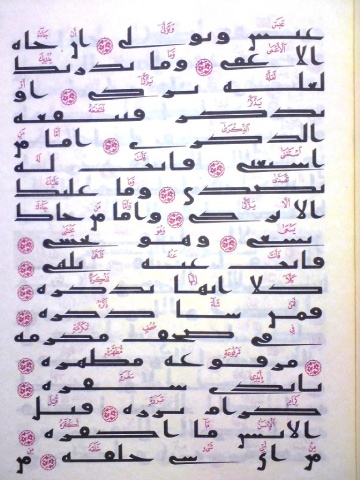 عبس وتولى ۝ ان جاه
الاعمى ۝ وما يدريك
لعله يزكى ۝ او
يذكر فتنفعه
الذكرى ۝ اما من
استغنى ۝ فانت له
تصدى ۝ وما عليك
الا يزكى ۝ واما من جاك
يسعى ۝ وهو يخشى ۝
فانت عنه تلهى ۝
كلا انها تذكره ۝
فمن شا ذكره ۝
في صحف مكرمه
۝ مرفوعه مطهره ۝
بايدي سفره ۝
كرام برره ۝ قتل
الانسن ما اكفره ۝
من اي شي خلقه ۝ من